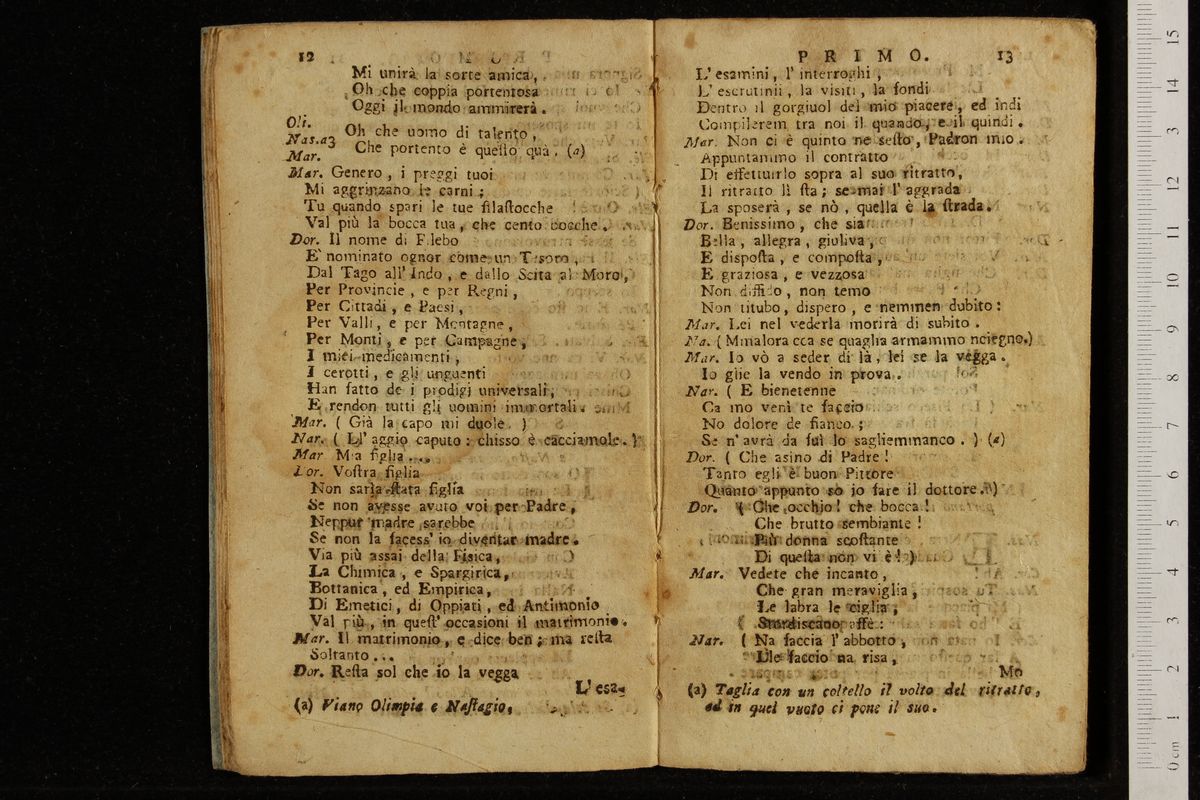 12
Mi unirà la sorte amica,
Oh che coppia portentosa
Oggi il mondo ammirerà.
Oli.
Nas.a3 Oh che uomo di talento,
Mar. Che portento è quello quà. (a)
Mar. Genero, i preggi tuoi
Mi aggrinzano le carni;
Tu quando spari le tue filaſtocche
Val più la bocca tua, che cento bocche.
Dor. Il nome di Filebo
E' nominato ognor come un Tesoro,
Dal Tago all' Indo, e dallo Scita al Moro,
Per Provincie, e per Regni,
Per Cittadi, e Paesi,
Per Valli, e per Montagne,
Per Monti, e per Campagne,
I miei medicamenti,
I cerotti, e gli unguenti
Han fatto de i prodigj universali,
E rendon tutti gli uomini immortali.
Mar. ( Già la capo mi duole. )
Nar. ( Ll' aggio caputo: chisso è cacciamole. )
Mar Mia figlia....
Dor. Voſtra figlia
Non saria ſtata figlia
Se non avesse avuto voi per Padre,
Neppur madre sarebbe
Se non la facess' io diventar madre.
Via più assai della Fisica,
La Chimica, e Spargirica,
Bottanica, ed Empirica,
Di Emetici, di Oppiati, ed Antimonio
Val più, in queſt' occasioni il matrimonio.
Mar. Il matrimonio, e dice ben; ma reſta
Soltanto...
Dor. Reſta sol che io la vegga
L' esa-
(a) Viano Olimpia e Naſtagio,
PRIMO. 13
L' esamini, l' interroghi,
L' escrutinii, la visiti, la fondi
Dentro il gorgiuol del mio piacere, ed indi
Compilerem tra noi il quando, e il quindi.
Mar. Non ci è quinto ne seſto, Padron mio.
Appuntammo il contratto
Di effettuirlo sopra al suo ritratto,
Il ritratto lì ſta; se mai l' aggrada
La sposerà, se nò, quella è la ſtrada.
Dor. Benissimo, che sia
Bella, allegra, giuliva,
E dispoſta, e compoſta,
E graziosa, e vezzosa
Non diffido, non temo
Non titubo, dispero, e nemmen dubito:
Mar. Lei nel vederla morirà di subito.
Na. ( Mmalora cca se quaglia armammo nciegno.)
Mar. Io vò a seder di là, lei se la vegga.
Io glie la vendo in prova.
Nar. ( E bienetenne
Ca mo venì te faccio
No dolore de fianco.;
Se n' avrà da fuì lo sagliemmanco. ) (a)
Dor. ( Che asino di Padre!
Tanto egli è buon Pittore
Quanto appunto so jo fare il dottore. )
Dor. ( Che occhio! che bocca!
Che brutto sembiante!
Più donna scoſtante
Di queſta non vi è! )
Mar. Vedete che incanto,
Che gran meraviglia,
Le labra le ciglia,
Stordiscano affè:
Nar. ( Na faccia l' abbotto,
Lle faccio na risa,
Mo
(a) Taglia con un coltello il volto del ritratto,
ed in quel vuoto ci pone il suo.